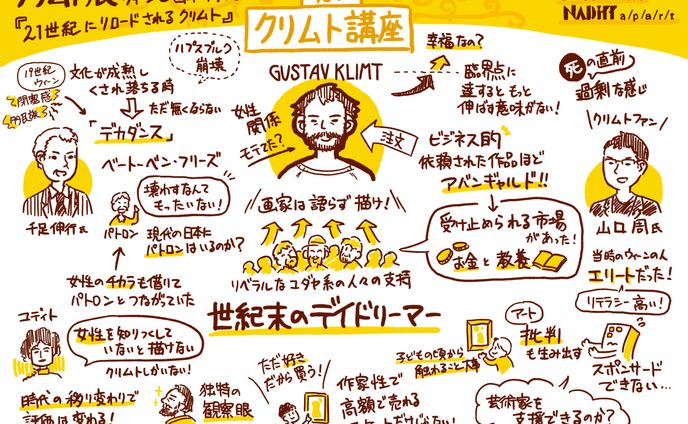 『21世紀にリロードされるクリムト』
クリムト講座
NADiff a/p/a/r/t
19世紀
ウィーン
閉塞感
多民族
文化が成熟し
くされ落ちる時
ハプスブルク
崩壊
ただ無くならない
「デカダンス」
ベートーベン・フリーズ
千足伸行氏
壊わすなんて
もったいない!
パトロン
現代の日本に
パトロンはいるのか?
女性のチカラも借りて
パトロンとつながっていた
GUSTAV KLIMT
女性
関係
モテてた?
注文
画家は語らず描け!
リベラルなユダヤ系の人々の支持
幸福なの?
臨界点に
達するともっと
伸ばす意味がない!
ビジネス的
依頼された作品ほど
アバンギャルド!!
受け止められる市場
があった!
お金と教養
死の直前
過剰な感じ
クリムトファン
山口周氏
当時のウィーンの人
エリートだった!
リテラシー高い!
世紀末のデイドリーマー
ユディト
女性を知りつくして
いないと描けない
クリムトしかいない!
時代の移り変わりで
評価は変わる!
独特の
観察眼
ただ好き
だから買う!
作家性で
高額で売れる
子どもの頃から
触れること大事
アート
批判
も生み出す
スポンサード
できない…
芸術家を
支援できるのか?